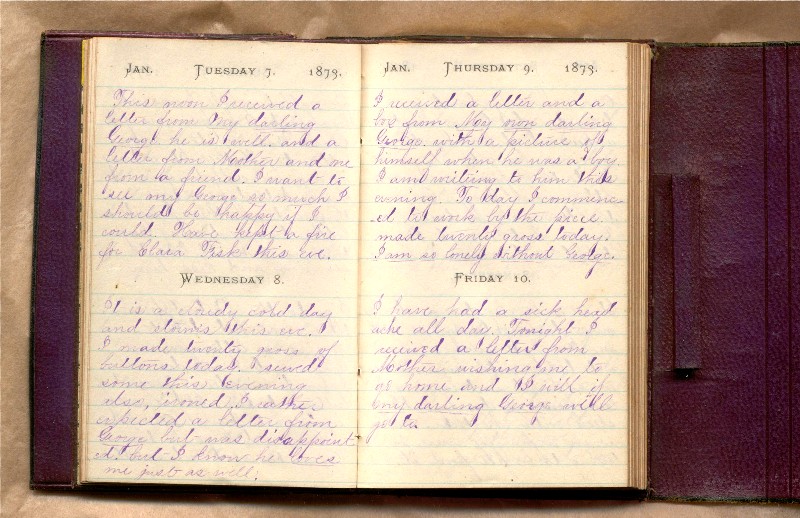 JAN. TUESDAY 7. 1873.
This noon I received a
letter from my darling
George he is well. and a
letter from Mother and one
from a friend. I want to
see my George so much I
should be happy if I
could. Have kept a fire
for Clara Fisk this eve.
WEDNESDAY 8.
It is a cloudy cold day
and storms this eve.
I made twenty gross of
buttons today. I sewed
some this evening
also, ironed. I rather
expected a letter from
George but was disappoint
ed. but I know he loves
me just as well.
JAN. THURSDAY 9. 1873.
I received a letter and a
box from My own darling
George. with a picture of
himself when he was a boy.
I am writing to him this
evening. To day I commenc
ed to work by the piece
made twenty gross today.
I am so lonely without George.
FRIDAY 10.
I have had a sick head
ache all day. Tonight I
received a letter from
Mother wishing me to
go home and I will if
my darling George will
go to.